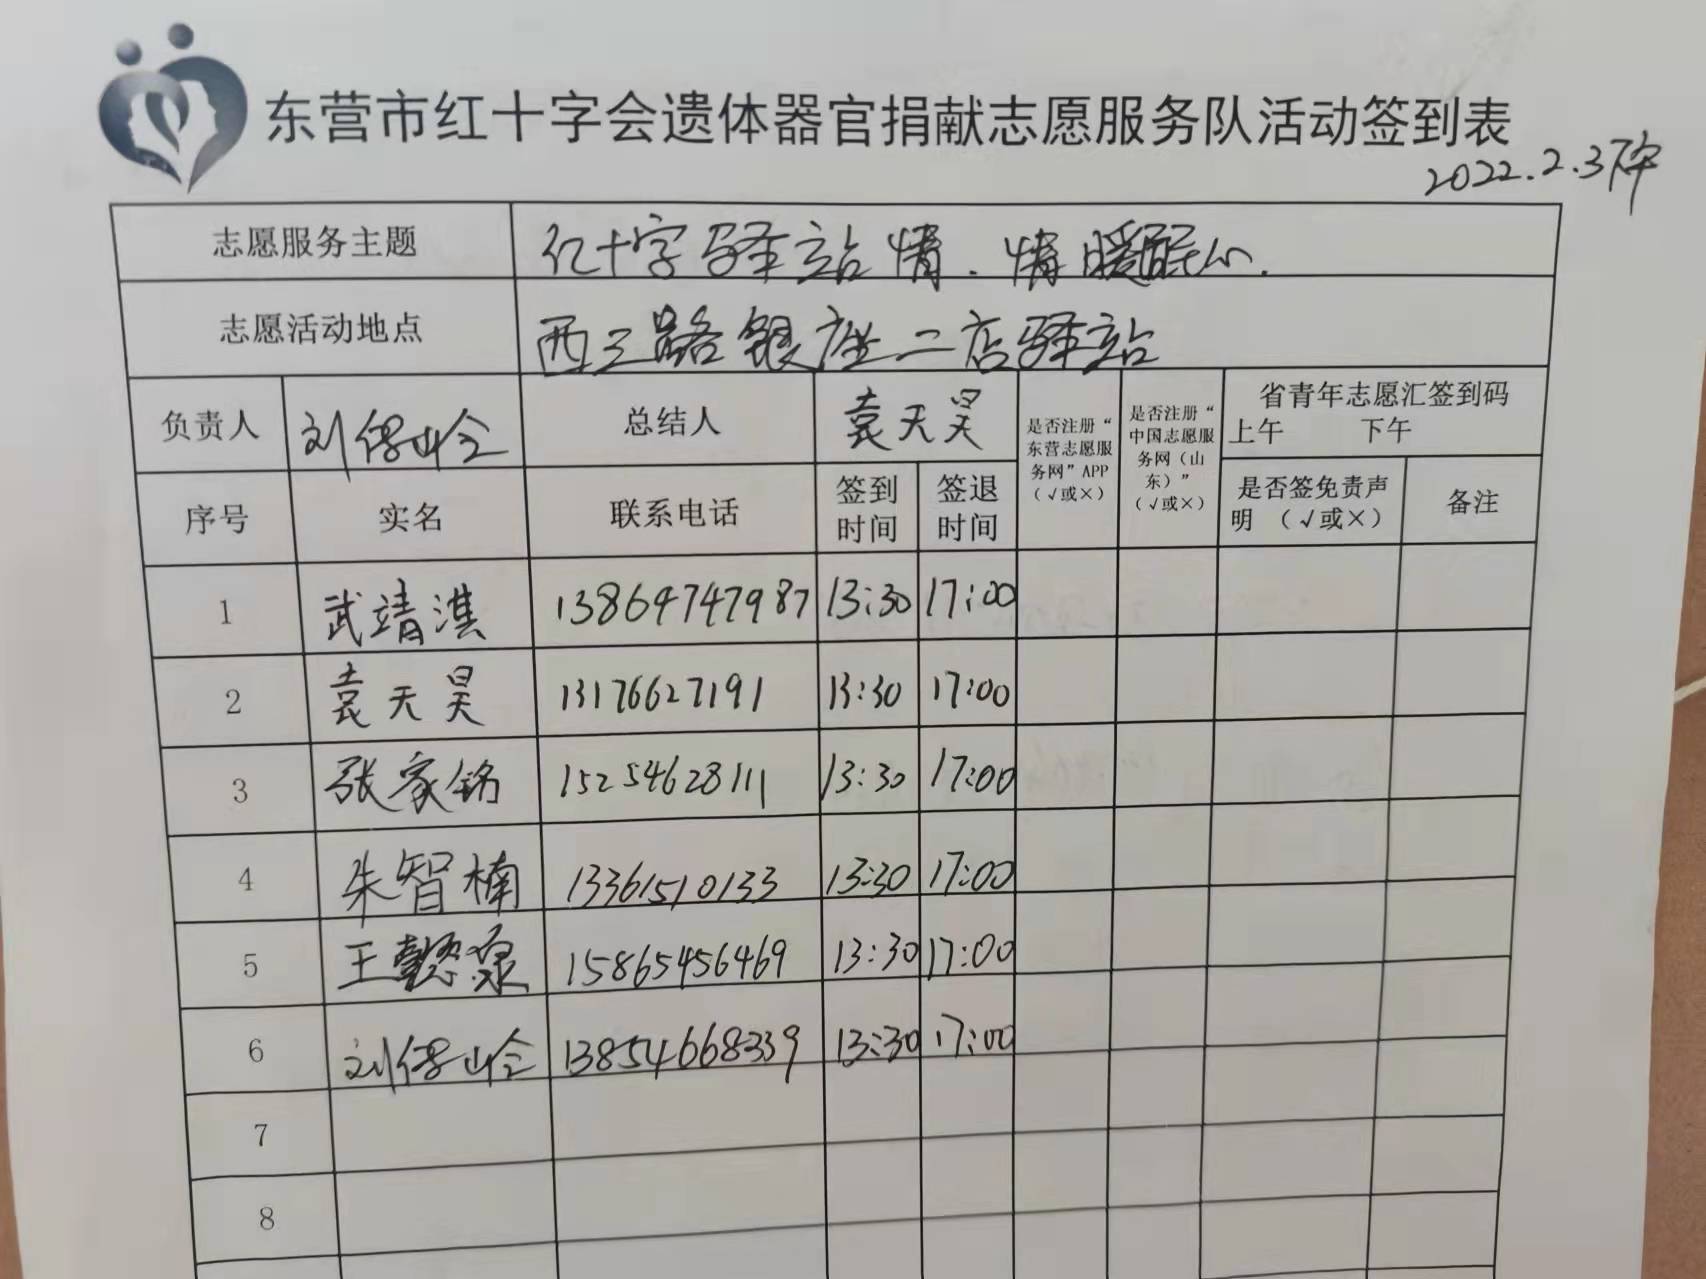 东营市红十字会遗体器官捐献志愿服务队活动签到表
2022.2.3下午
志愿服务主题 红十字驿站情.情暖民心.
志愿活动地点 西三路银座二店驿站
负责人 刘保岭 总结人 袁天昊 是否注册“东营志愿服务网”APP(√或×) 是否注册“中国志愿服务网(山东)”(√或×) 省青年志愿汇签到码 上午 下午
序号 实名 联系电话 签到时间 签退时间 是否签免责声明 (√或×) 备注
1 武靖淇 13864747987 13:30 17:00
2 袁天昊 13176627191 13:30 17:00
3 张家铭 15254628111 13:30 17:00
4 朱智楠 13361510133 13:30 17:00
5 王懿泉 15865456469 13:30 17:00
6 刘保岭 13854668339 13:30 17:00
7
8